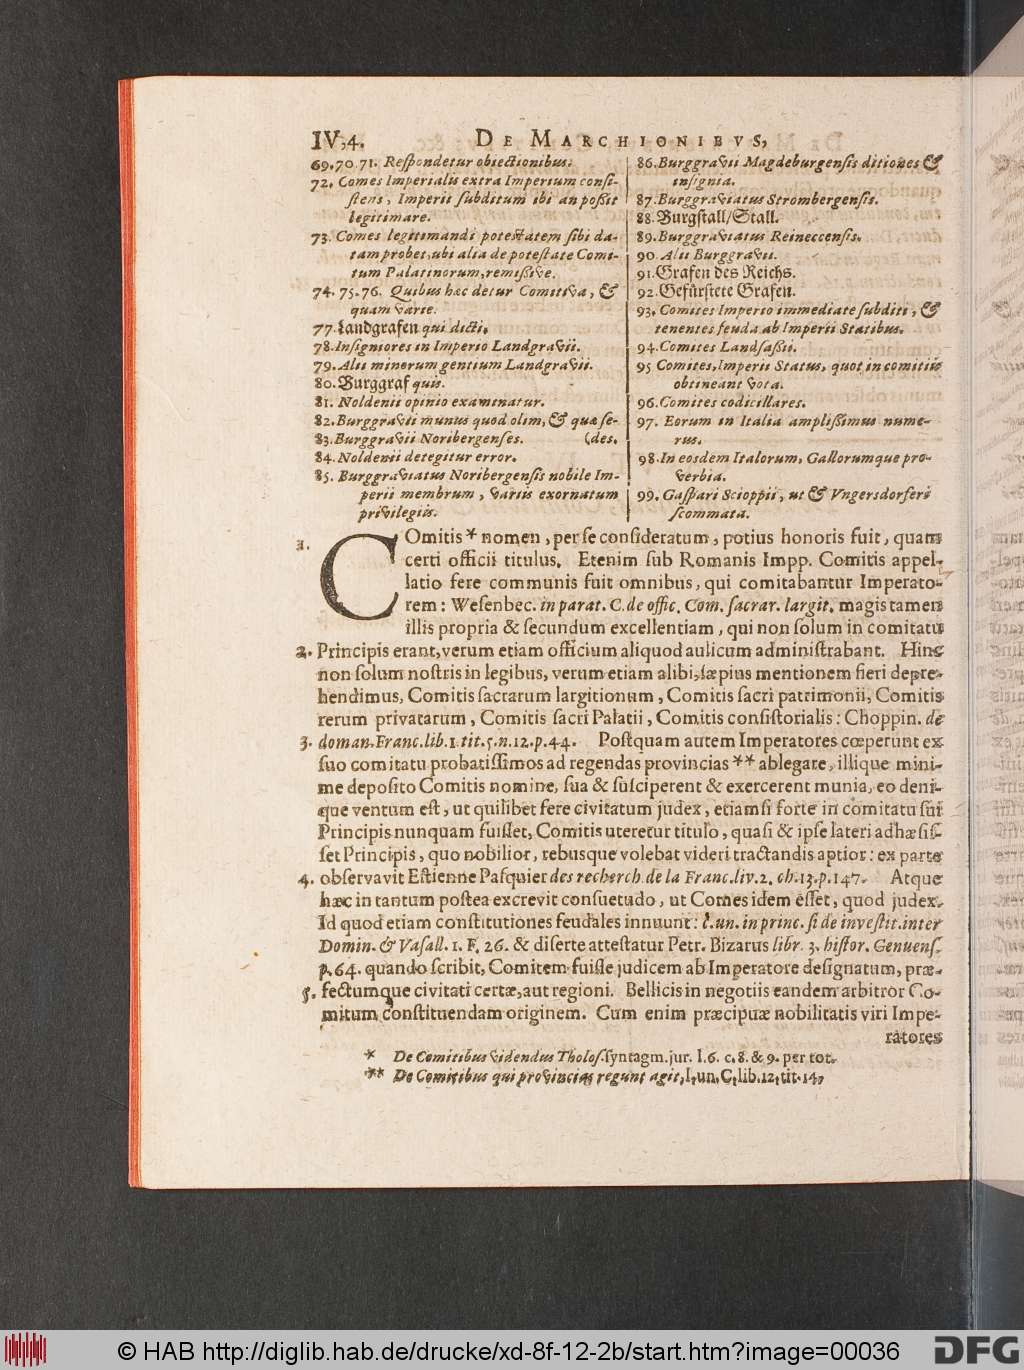 IV, 4. DE MARCHIONIBVS,
69. 70. 71. Reſpondetur obiectionibus.
72. Comes Imperialis extra Imperium conſi-
ſtens, Imperii ſubditum ibi an poßit
legitimare.
73. Comes legitimandi poteſtatem ſibi da-
tam probet, ubi alia de poteſtate Comi-
tum Palatinorum, remißive.
74. 75. 76. Quibus hæc detur Comitiva, &
quam varie.
77. Landgrafen qui dicti.
78. Inſigniores in Imperio Landgravii.
79. Alii minorum gentium Landgravii.
80. Burggraf quis.
81. Noldenii opinio examinatur.
82. Burggravii munus quod olim, & quæ ſe-
83. Burggravii Noribergenſes. (des.
84. Noldenii detegitur error.
85. Burggraviatus Noribergenſis nobile Im-
perii membrum, variis exornatum
privilegiis.
86. Burggravii Magdeburgenſis ditiones &
inſignia.
87. Burggraviatus Strombergenſis.
88. Burgſtall/Stall.
89. Burggraviatus Reineccenſis.
90. Alii Burggravii.
91. Grafen des Reichs.
92. Gefürſtete Grafen.
93. Comites Imperio immediate ſubditi, &
tenentes feuda ab Imperii Statibus.
94. Comites Landſaßii.
95 Comites, Imperii Status, quot in comitiis
obtineant vota.
96. Comites codicillares.
97. Eorum in Italia amplißimus nume-
rus.
98. In eosdem Italorum, Gallorumque pro-
verbia.
99. Gaſpari Scioppii, ut & Vngersdorferi
ſcommata.
1. COmitis * nomen, per ſe conſideratum, potius honoris fuit, quam
certi officii titulus. Etenim ſub Romanis Impp. Comitis appel-
latio fere communis fuit omnibus, qui comitabantur Imperato-
rem: Weſenbec. in parat. C. de offic. Com. ſacrar. largit. magis tamen
illis propria & ſecundum excellentiam, qui non ſolum in comitatu
2. Principis erant, verum etiam officium aliquod aulicum adminiſtrabant. Hinc
non ſolum noſtris in legibus, verum etiam alibi, ſæpius mentionem fieri depre-
hendimus, Comitis ſacrarum largitionum, Comitis ſacri patrimonii, Comitis
rerum privatarum, Comitis ſacri Palatii, Comitis conſiſtorialis: Choppin. de
3. doman. Franc. lib. 1. tit. 5. n. 12. p. 44. Poſtquam autem Imperatores cœperunt ex
ſuo comitatu probatiſſimos ad regendas provincias ** ablegare, illique mini-
me depoſito Comitis nomine, ſua & ſuſciperent & exercerent munia, eo deni-
que ventum eſt, ut quilibet fere civitatum judex, etiamſi forte in comitatu ſui
Principis nunquam fuiſſet, Comitis uteretur titulo, quaſi & ipſe lateri adhæſiſ-
ſet Principis, quo nobilior, rebusque volebat videri tractandis aptior: ex parte
4. obſervavit Eſtienne Paſquier des recherch. de la Franc. liv. 2. ch. 13. p. 147. Atque
hæc in tantum poſtea excrevit conſuetudo, ut Comes idem eſſet, quod judex.
Id quod etiam conſtitutiones feudales innuunt: c. un. in princ. ſi de inveſtit. inter
Domin. & Vaſall. 1. F. 26. & diſerte atteſtatur Petr. Bizarus libr. 3. hiſtor. Genuenſ.
p. 64. quando ſcribit, Comitem fuiſſe judicem ab Imperatore deſignatum, præ-
5. fectumque civitati certæ, aut regioni. Bellicis in negotiis eandem arbitror Co-
mitum conſtituendam originem. Cum enim præcipuæ nobilitatis viri Impe-
ratores
* De Comitibus videndus Tholoſ. ſyntagm. jur. l. 6. c. 8. & 9. per tot.
** De Comitibus qui provincias regunt agit, l. un. C. lib. 12. tit. 14.
© HAB http://diglib.hab.de/drucke/xd-8f-12-2b/start.htm?image=00036
DFG